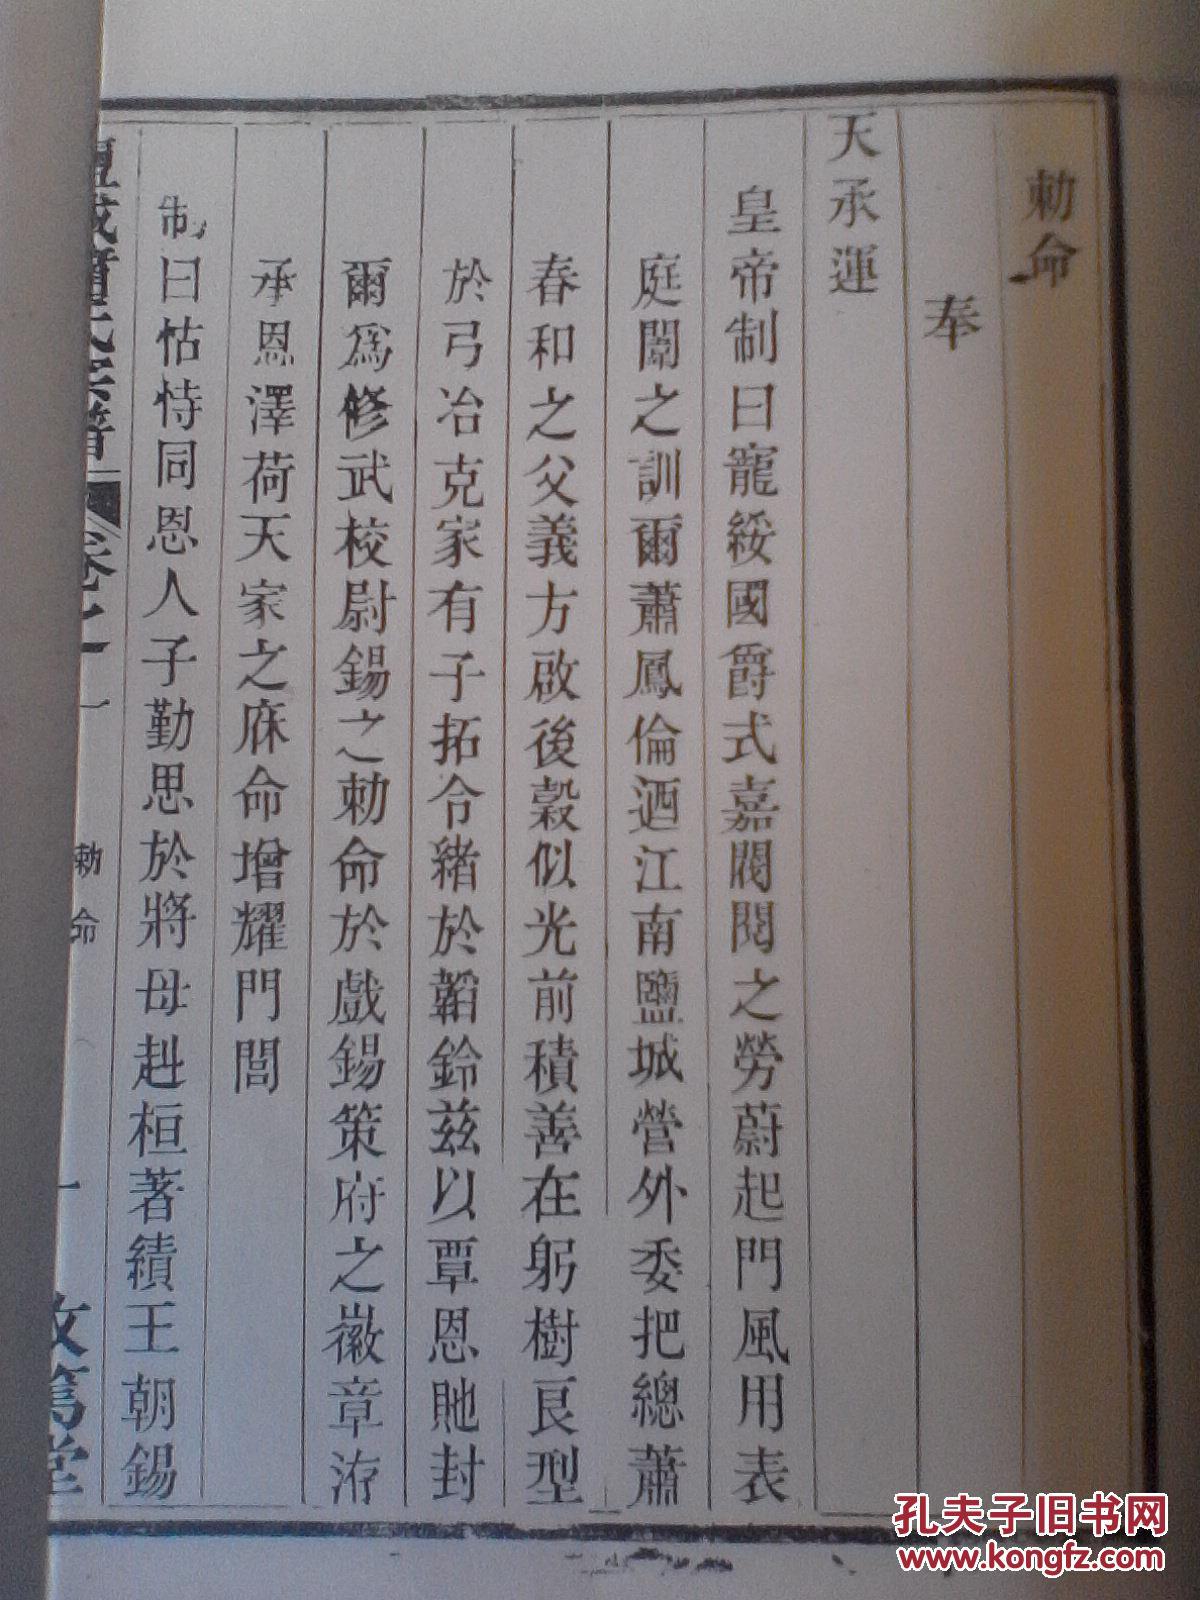 勅命
奉
天承運
皇帝制曰寵綏國爵式嘉閥閱之勞蔚起門風用表
庭闈之訓爾蕭鳳倫迺江南鹽城營外委把總蕭
春和之父義方啟後穀似光前積善在躬樹良型
於弓冶克家有子拓令緒於韜鈴茲以覃恩貤封
爾爲修武校尉錫之勅命於戲錫策府之徽章洊
承恩澤荷天家之庥命增耀門閭
制曰怙恃同恩人子勤思於將母赳桓著績王朝錫
宗譜
卷之一
勅命
一
敦篤堂
孔夫子旧书网
www.kongfz.com